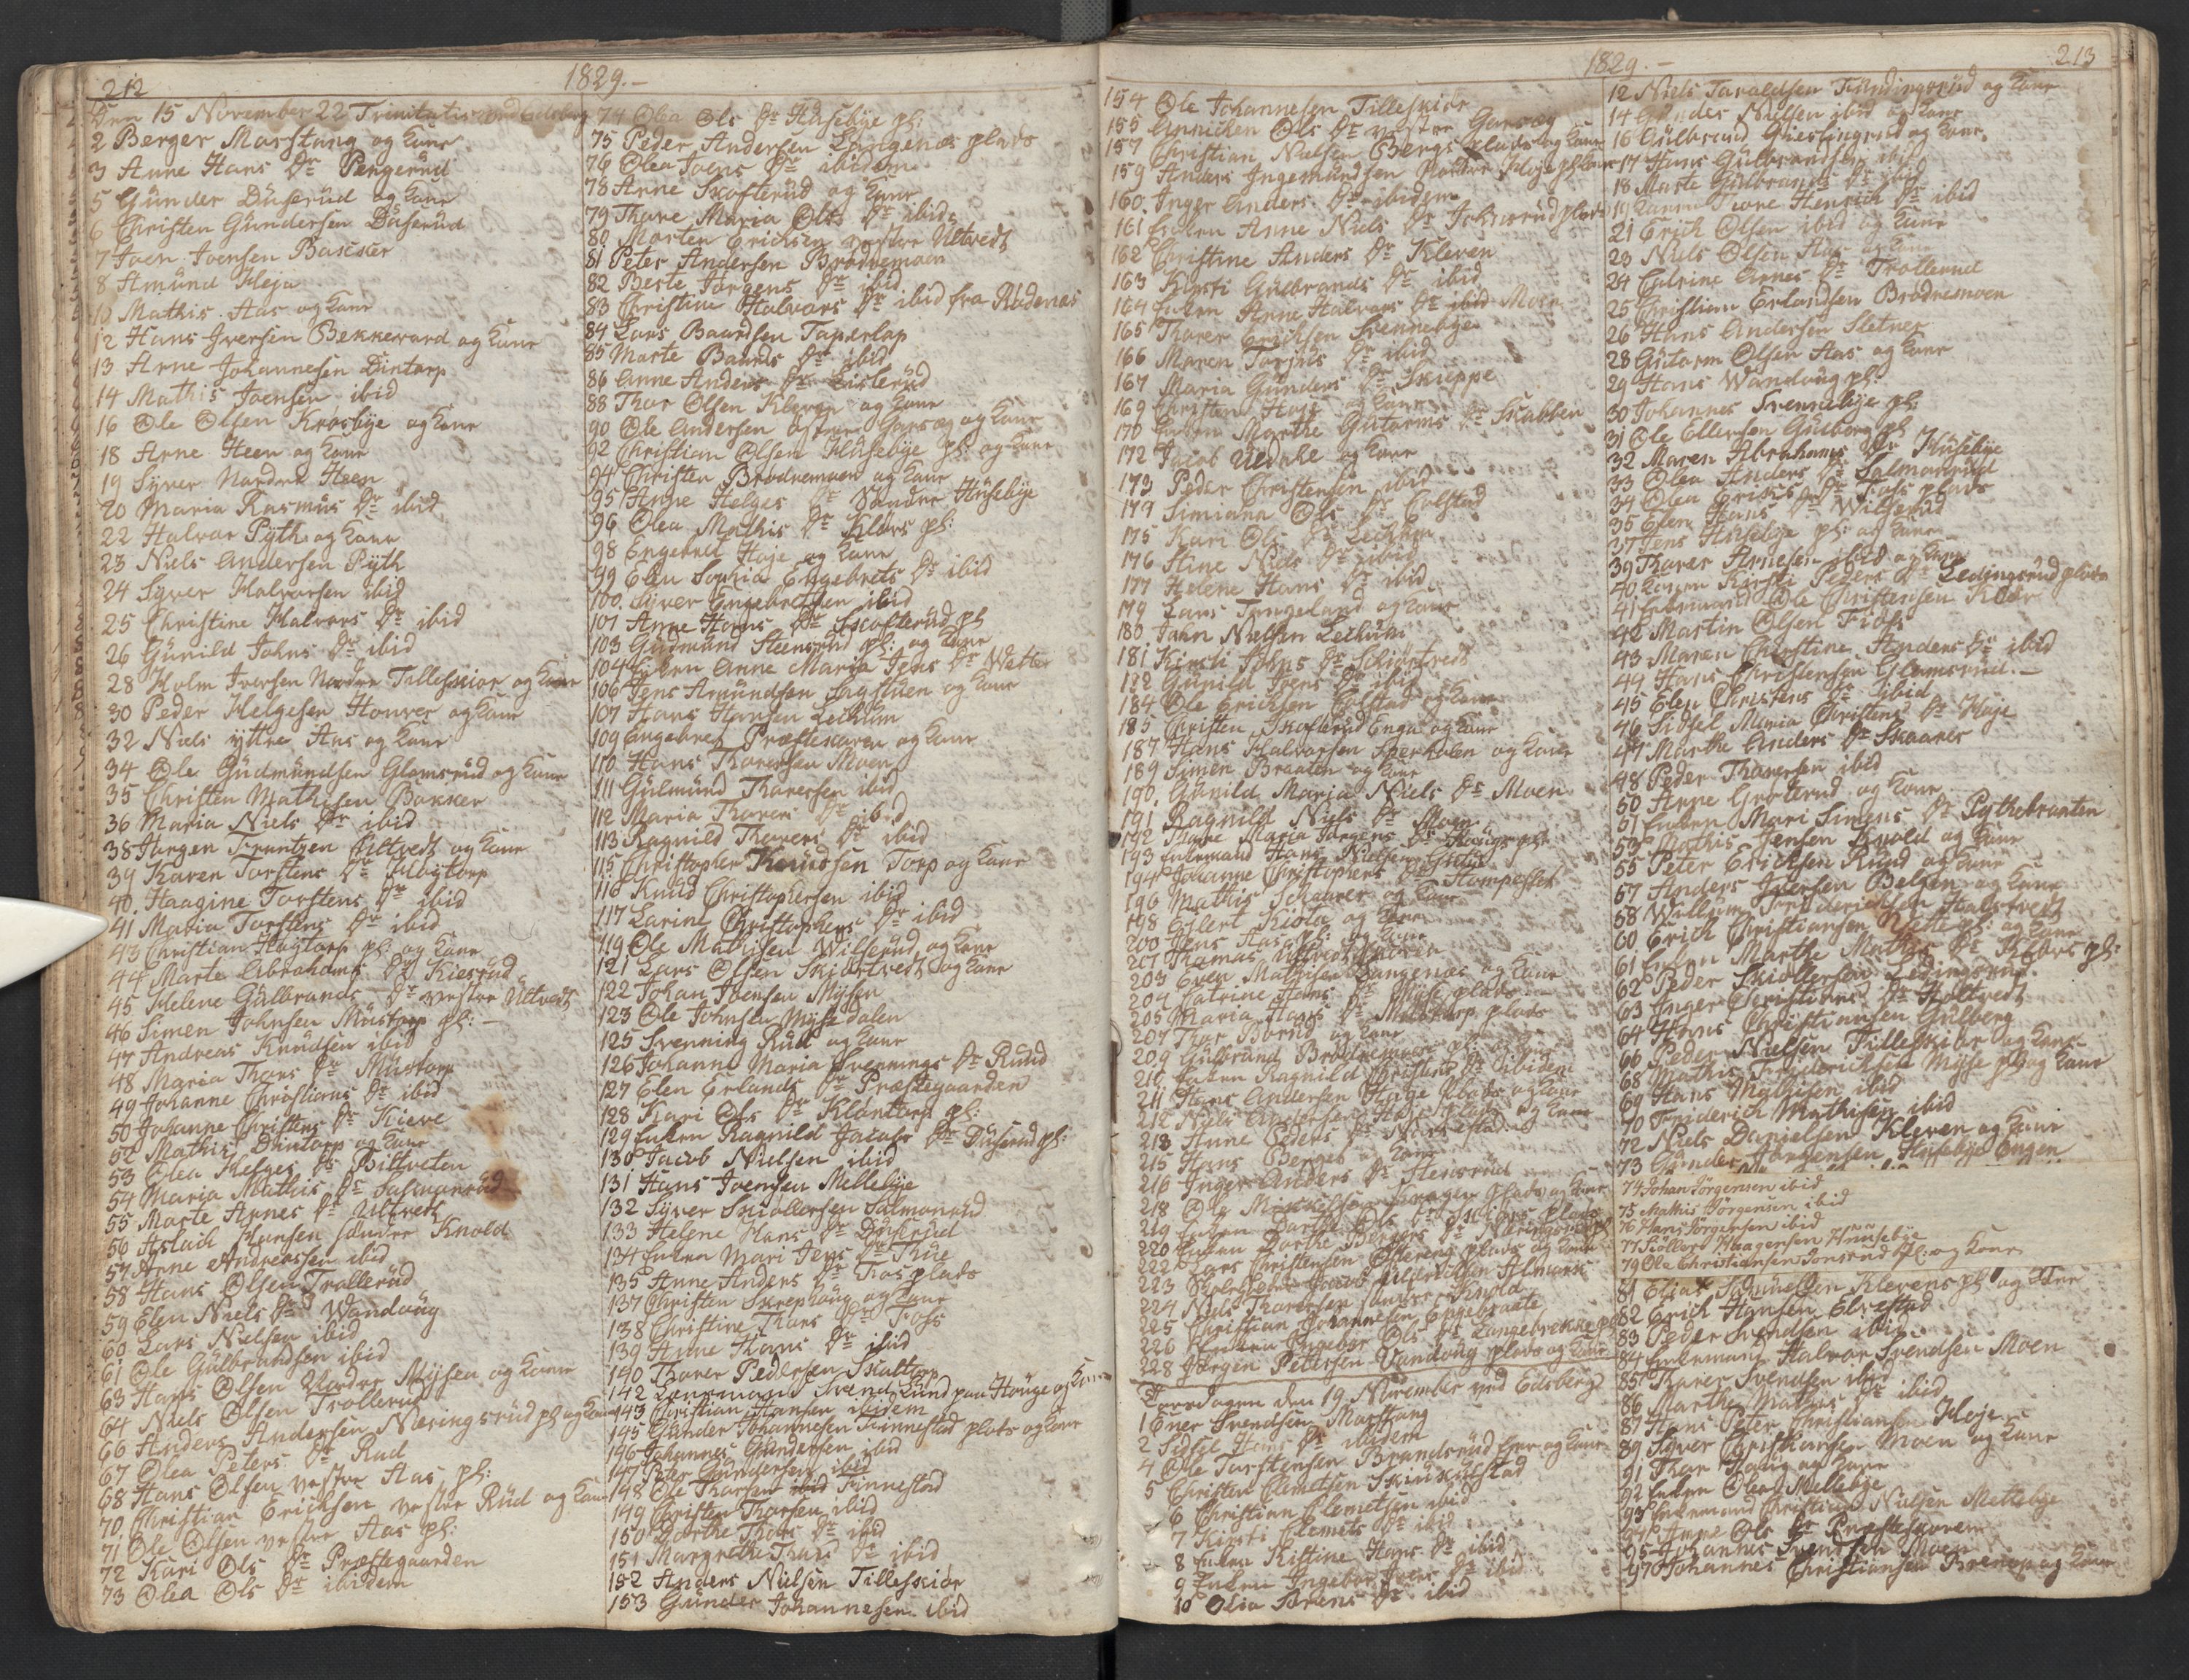 212
1829.-
Den 15 November 22 Trinitatis ved Edsberg
2 Berger Marstang og Kone
3 Anne Hans Dr Pengerud
5 Gunder Düserüd og Kone
6 Christen Gündersen Düserüd
7 Joen Joensen Basester
8 Amünd Heja
10 Mathis Aas og Kone
12 Hans Iversen Bekkevard og Kone
13 Arne Johannesen Dintorp
14 Mathis Joensen ibid
16 Ole Olsen Krosbÿe og Kone
18 Arne Heen og Kone
19 Sÿver Nordre Heen
20 Maria Rasmüs Dr ibid
22 Halvor Pÿth og Kone
23 Niels Andersen Pÿth
24 Sÿver Halvorsen ibid
25 Christine Halvors Dr ibid
26 Günild Johns Dr ibid
28 Holm Iversen Nordre Tilleskior og Kone
30 Peder Helgesen Honver og Kone
32 Niels ÿttre Aas og Kone
34 Ole Güdmündsen Glomsrüd og Kone
35 Christen Mathisen Bakker
36 Maria Niels Dr ibid
38 Jörgen Frantzen Ultvedt og Kone
39 Karen Torstens Dr Höÿtorp
40. Haagine Torstens Dr ibid
41 Maria Torstens Dr ibid
43 Christian Höÿtorp pl: og Kone
44 Marte Abrahams Dr Kiesrud
45 Helene Gülbrands Dr vestre Ultvedt
46 Simen Johnsen Müstorp pl:
47 Andreas Knudsen ibid
48 Maria Thors Dr Müstorp
49 Johanne Christians Dr ibid
50 Johanne Christens Dr Kieve
52 Mathis Dintorp og Kone
53 Olea Helges Dr Biltveten
54 Maria Mathis Dr Salmonrüd
55 Marte Arnes Dr Ultvedt
56 Aslach Hansen søndre Knold
57 Anne Andreassen ibid
58 Hans Olsen Trollerüd
59 Elen Niels Dr Vandoüg
60 Lars Nielsen ibid
61 Ole Gülbrandsen ibid
63 Hans Olsen Nordre Mÿsen og Kone
64 Niels Olsen Trollerud
66 Anders Andersen Næringsrüd pl og Kone
67 Olea Peters Dr Rud
68 Hans Olsen vestre Aas pl:
70. Christian Ericksen vestre Rüd og Kone
71 Ole Olsen vestre Aas pl:
72 Kari Ols Dr Præstegaarden
73 Olea Ols Dr ibidem
74 Olea Ols Dr Hüsebÿe pl:
75 Peder Andersen Langenæs plads
76 Olea Joens Dr ibidem
78 Arne Skofterüd og Kone
79 Thore Maria Ols Dr ibid
80. Morten Ericksen vestre Ultvedt
81 Peter Andersen Brødremoen
82 Berte Jørgens Dr ibid
83 Christine Halvors Dr ibid fra Rødenæs
84 Lars Baardsen Taperlap
85 Marte Baards Dr ibid
86 Anne Anders Dr Eisterüd
88 Thor Olsen Kleven og Kone
90 Ole Andersen østre Garseg og Kone
92 Christian Olsen Hüsebÿe pl: og Kone
94 Christen Brødremoen og Kone
95 Anne Helges Dr Søndre Hüsebÿe
96 Olea Mathis Dr Klørs pl:
98 Engebret Høje og Kone
99 Elen Sophia Engebrets Dr ibid
100. Sÿver Engebretsen ibid
101 Anne Hans Dr Skofterüd pl
103 Gudmünd Steensrud pl: og Kone
104 Enken Anne Maria Jens Dr Watler
106 Jens Amündsen Sagstüen og Kone
107 Hans Hansen Leckum
109 Engebret Præsteskoven og Kone
110 Hans Thoresen Moen
111 Gülmünd Thoresen ibid
112 Maria Thorers Dr ibid
113 Ragnild Thorers Dr ibid
115 Christopher Knudsen Torp og Kone
116 Knüd Christophersen ibid
117 Karine Christophers Dr ibid
119 Ole Mathisen Wilserüd og Kone
121 Lars Olsen Skiørtvedt og Kone
122 Johan Joensen Mÿsen
123 Ole Johnsen Mÿsedalen
125 Svenning Rüd og Kone
126 Johanne Maria Svennings Dr Ruud
127 Elen Erlands Dr Præstegaarden
128 Kari Ols Dr Klontorp pl:
129 Enken Ragnild Jacobs Dr Düserud pl:
130 Jacob Nielsen ibid
131 Hans Joensen Mellebÿe
132 Sÿver Skiollersen Salmonrüd
133 Helene Hans Dr Düserüd
134 Enken Mari Jens Dr Trüe
135 Anne Anders Dr Fos plads
137 Christen Skrephoug og Kone
138 Christine Thors Dr Foss
139 Anne Hans Dr ibid
140 Thorer Pedersen Skoltorp
142 Lensmand Svend Lund paa Houge og Kone
143 Christian Hansen ibidem
145 Günder Johannesen Finnestad plads og Kone
146 Johannes Gündersen ibid
147 Peter Gündersen ibid
148 Ole Thorsen Finnestad
149 Christen Thorsen ibid
150 Dorthe Thors Dr ibid
151 Margrethe Thors Dr ibid
152 Anders Nielsen Tilleskiør
153 Günder Johannesen ibid
1829.-
213
154 Ole Johannesen Tilleskiør
155 Annichen Ols Dr vestre Garseg
157 Christian Nielsen Bergs plads og Kone
159 Anders Ingemundsen Nordre Høje pl og Kone
160. Inger Anders Dr ibidem
161 Enken Anne Niels Dr Johnsrüd plads
162 Christine Anders Dr Kleven
163 Kirsti Gülbrands Dr ibid
164 Enken Anne Halvors Dr Moen
165 Thorer Ericksen Svennebÿe
166 Maren Torjüs Dr ibid
167 Maria Günders Dr Skieppe
169 Christen Hoje og Kone
170 Enken Marthe Gütorms Dr Skabben
172 Jacob Uldahl og Kone
173 Peder Christensen ibid
174 Simiana Ols Dr Colstad
175 Kari Ols Dr Leckum
176 Stine Niels Dr ibid
177 Helene Hans Dr ibid
179 Lars Tengeland og Kone
180 John Nielsen Leckum
181 Kirsti Johns Dr Schiørtvedt
182 Günild Jens Dr ibid
184 Ole Ericksen Colstad og Kone
185 Christen Skofterüd Enga og Kone
187 Hans Halvorsen Sperholen og Kone
189 Simen Braaten og Kone
190. Günild Maria Niels Dr Moen
191 Ragnild Niels Dr Moen
192 Thore Maria Jørgens Dr Houge pl:
193 Enkemand Hans Nielsen
194 Johanne Christophers Dr Stompestet
196 Mathis Schaarer og Kone
198 Eglert Kiøta og Kone
200 Jens Aas pl: og Kone
201 Thomas Ultvedt
203 Even Mathisen Langenæs og Kone
204 Catrine Hans Dr Mÿse plads
205 Maria Hans Dr plads
207 Thor og Kone
209 Gülbrand Brødremoen pl: og Kone
210. Enken Ragnild Christens Dr ibidem
211 Hans Andersen Hüge plads og Kone
212 Niels Andersen Høje plads og Kone
213 Anne Peders Dr
215 Hans Berger og Kone
216 Inger Anders Dr Stensrüd
218 Ole Mickelsen Kragen plads og Kone
219 Enken Dorthe Ols Dr plads
220 Enken Dorthe Bergers Dr
222 Lars Christensen Østereng plads og Kone
223 Skoleholder Jacob
224 Niels Thorersen søndre Knold
225 Christian Johannesen Engebraate
226 Enken Ingebor Ols Dr Langebrekke pl
228 Jørgen Petersen Vandoug plads og Kone
Torsdagen den 19 November ved Edsberg
1 Ener Svendsen Marstang
2 Sidsel Hans Dr ibidem
4 Ole Torstensen Brandsrüd og Kone
5 Christen Clemetsen Skiuskulstad
6 Christian Clemetsen ibid
7 Kirsti Clemets Dr ibid
8 Enken Kistine Hans Dr ibid
9 Enken Ingebor Ivers Dr ibid
10 Olia Sørens Dr ibid
12 Niels Taraldsen og Kone
14 Günder Nielsen ibid og Kone
16 Gülbrand Giestingrud og Kone
17 Hans Gülbrandsen ibid
18 Marte Gülbrands Dr ibid
19 Konen Tore Henrich Dr ibid
21 Erich Olsen ibid og Kone
23 Niels Olsen Aas og Kone
24 Catrine Arnes Dr Trollerud
25 Christian Erlandsen Brødremoen
26 Hans Andersen Sletner
28 Gütorm Olsen Aas og Kone
29 Hans Wandoug pl:
30 Johannes Svennebÿe pl:
31 Ole Ellersen Gülborg pl
32 Maren Abrahams Dr Hüsebÿe
33 Olea Anders Dr Salmonrüd
34 Olea Ericks Dr Foss plads
35 Elen Hans Dr Wilserüd
37 Jens Hüsebÿe pl: og Kone
39 Thorer Arnesen ibid og Kone
40 Konen Kirsti Peders Dr Ledingsrüd plads
41 Enkemand Ole Christensen Klør
42 Martin Olsen Foss
43 Maren Christine Anders Dr ibid
44 Hans Christensen Glomsrüd.-
45 Elen Christens Dr ibid
46 Sidsel Maria Christens Dr Høje
47 Marthe Anders Dr Skaarer
48 Peder Thorersen ibid
50 Arne Groterud og Kone
51 Enken Mari Simens Dr Pÿthebraaten
53 Mathis Jensen Knold og Kone
55 Peter Ericksen Ruud og Kone
57 Anders Iversen Belsen og Kone
58 Willum Friderichsen Haltvedt
60 Erich Christiansen pl: og Kone
61 Enken Marthe Mathis Dr Kløvs pl:
62 Peder Skiollersen Ledingsrud.
63 Inger Christians Dr Holtvedt
64 Hans Christiansen Gülberg
66 Peder Nielsen Tilleskiør og Kone
68 Mathis Friderichsen Mÿse pl og Kone
69 Hans Mathisen ibid
70 Friderich Mathisen ibid
72 Niels Danielsen Kleven og Kone
73 Gunder Jørgensen Hüsebÿe Engen
74 Johan Jörgensen ibid
75 Mathis Jörgensen ibid
76 Hans Jörgensen ibid
77 Siöllvor Haagensen Huusebÿe
79 Ole Christiansen Tonsrud pl: og Kone
81 Elias Samuelsen Klevens pl og Kone
82 Erich Hansen Elvestad
83 Peder Svendsen ibid
84 Enkemand Halvor Svendsen Moen
85. Thorer Svendsen ibid
86 Marthe Mathis Dr ibid
87 Hans Peter Christiansen Høje
89 Sÿver Christiansen Moen og Kone
91 Thor Houg og Kone
92 Enken Olea Mellebÿe
93 Enkemand Christian Nielsen Mellebÿe
94 Anne Ols Dr Præsteskoven
95 Johannes Svendsen Moen
97 Johannes Christiansen Brenop og Kone